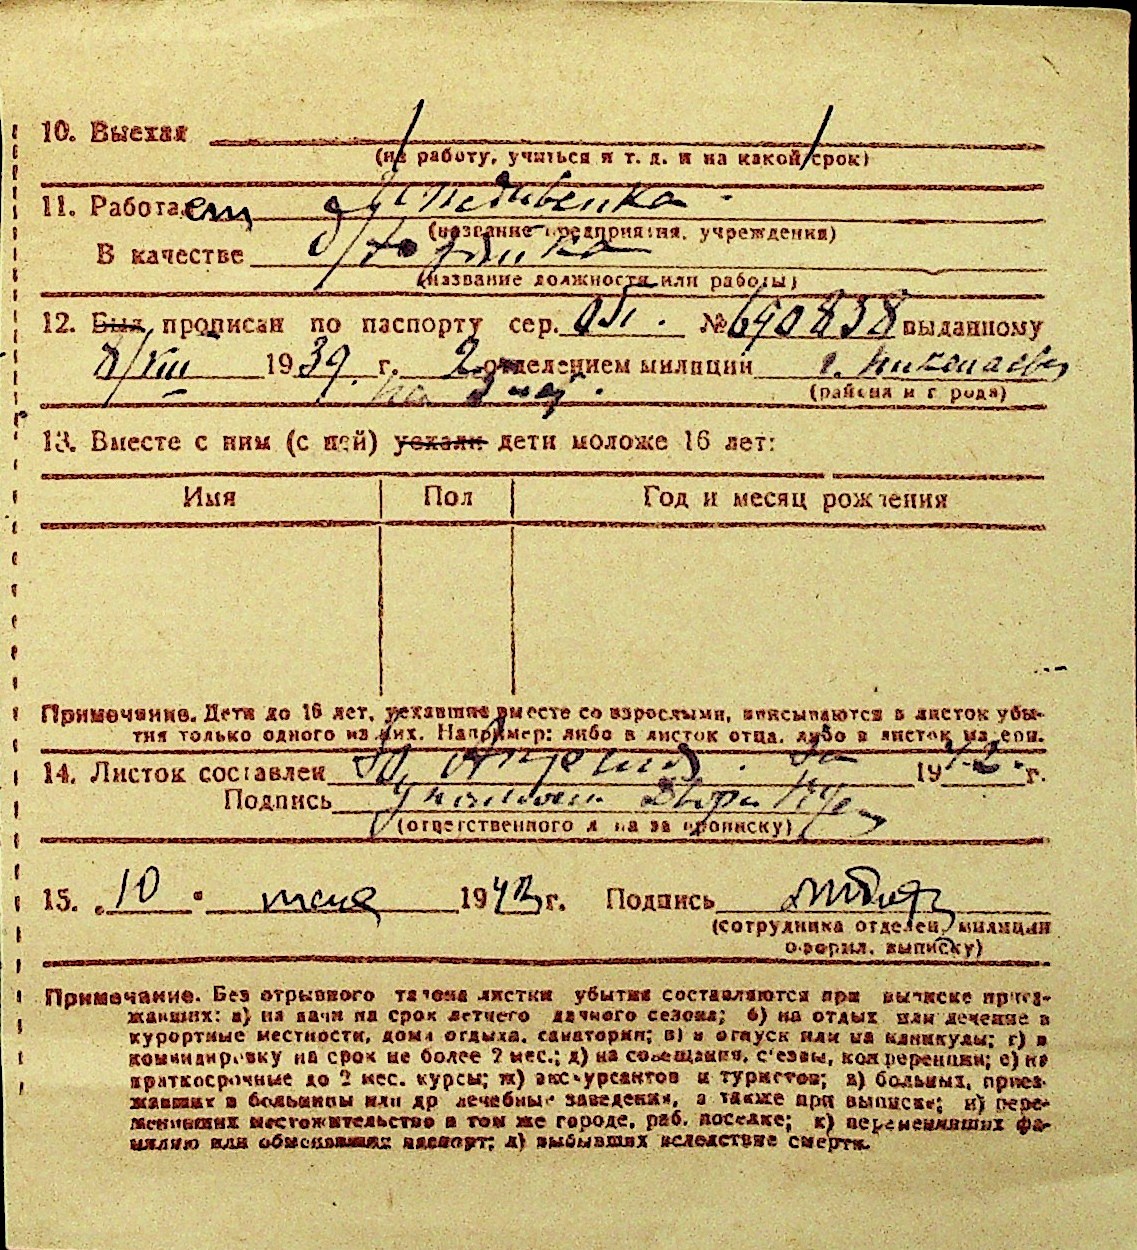 10. Выехал
(на работу, учиться и т. д. и на какой срок)
11. Работает
(название предприятия, учреждения)
В качестве
(название должности или работы)
12. Был прописан по паспорту сер. № 690838 выданному
8/VIII 1939 г. 2 отделением милиции г. Николаев
(района и города)
13. Вместе с ним (с ней) уехали дети моложе 16 лет:
Имя Пол Год и месяц рождения
Примечание. Дети до 16 лет, уехавшие вместе со взрослыми, вписываются в листок убы-
тия только одного из них. Например: либо в листок отца, либо в листок матери.
14. Листок составлен 1942 г.
Подпись
(ответственного лица за прописку)
15. „10" 194 г. Подпись
(сотрудника отделен. милиции
оформл. выписку)
Примечание. Без отрывного талона листки убытия составляются при выписке приез-
жавших: а) на дачи на срок летнего дачного сезона; б) на отдых или лечение в
курортные местности, дома отдыха, санатории; в) в отпуск или на каникулы; г) в
командировку на срок не более 2 мес.; д) на совещания, с'езды, конференции; е) на
краткосрочные до 2 мес. курсы; ж) экскурсантов и туристов; з) больных, приез-
жавших в больницы или др лечебные заведения, а также при выписке; и) пере-
менивших местожительство в том же городе, раб. поселке; к) переменивших фа-
милию или обменявших паспорт; л) выбывших вследствие смерти.